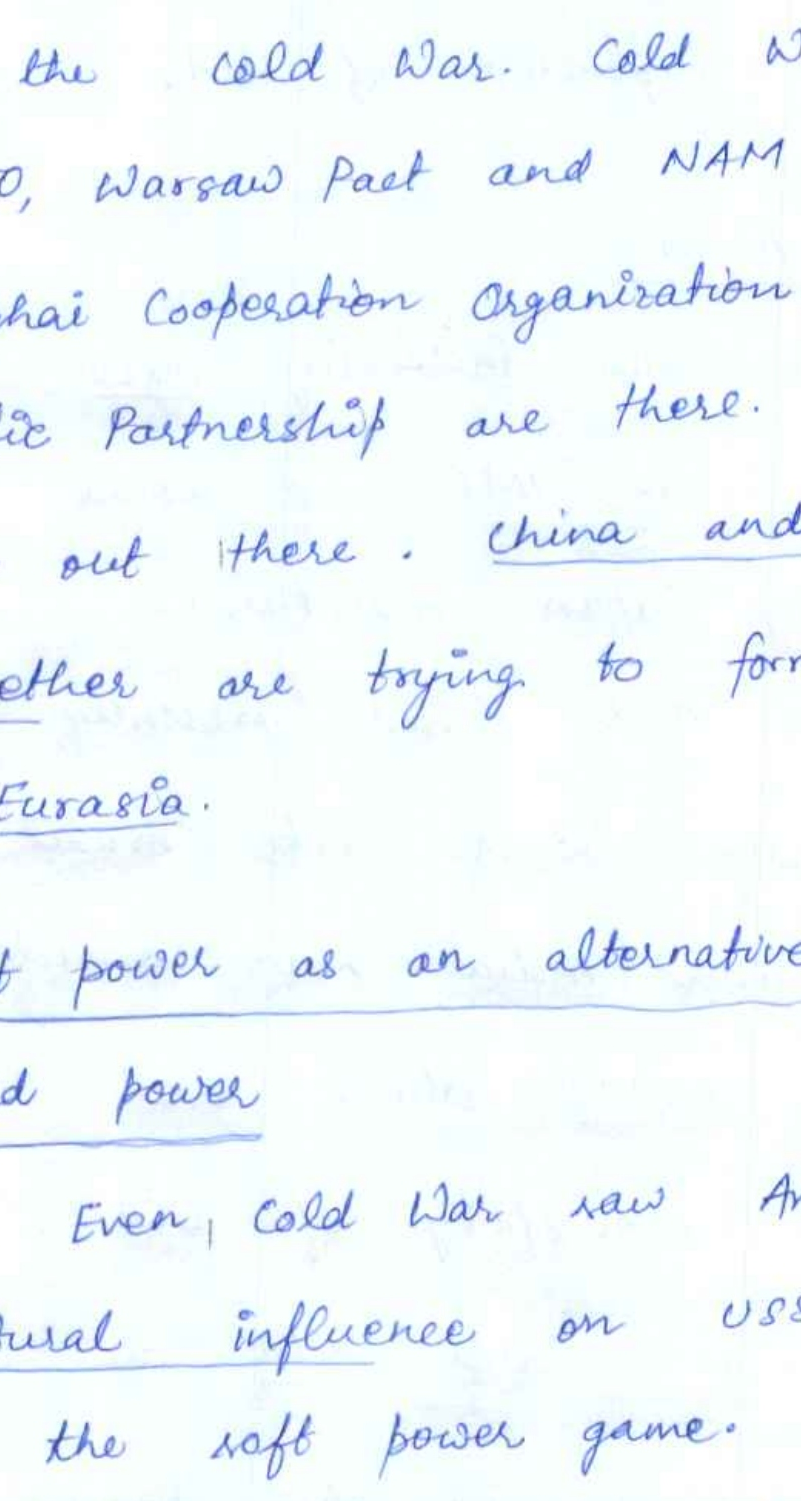 the cold War. Cold W
O, Warsaw Pact and NAM
hai Cooperation Organization
lic Partnership are there.
out there. China and
ether are trying to for
Eurasia.
t power as an alternative
d power
Even, Cold War saw Am
tural influence on USS
the soft power game.